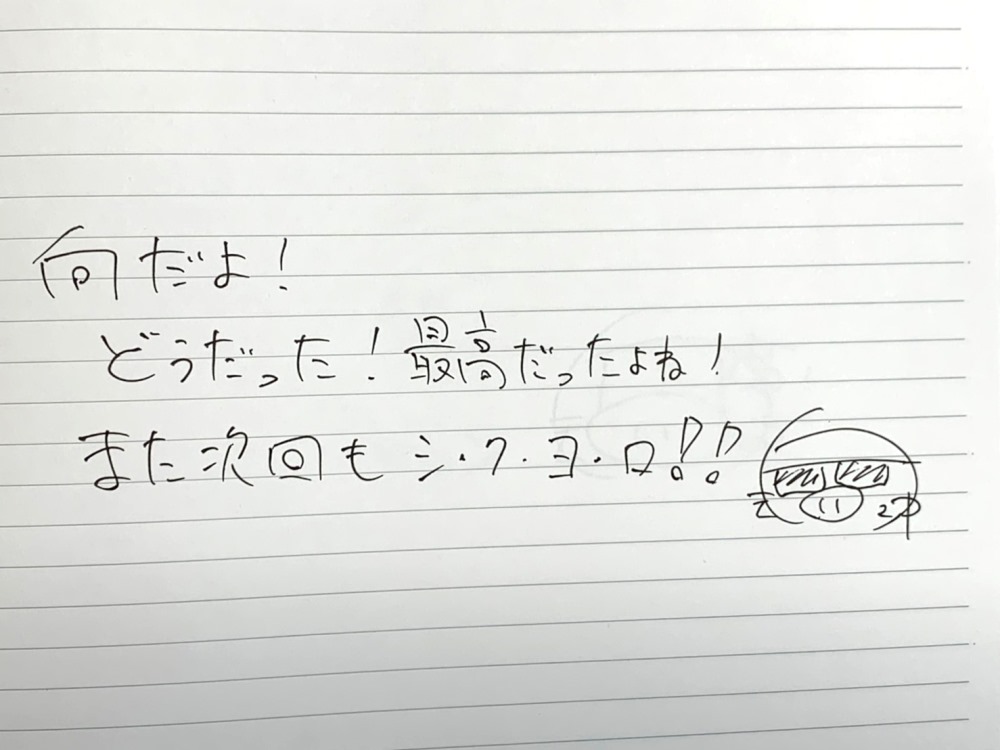 何だよ!
どうだった!最高だったよね!
また次回もシ・ク・ヨ・ロ!!